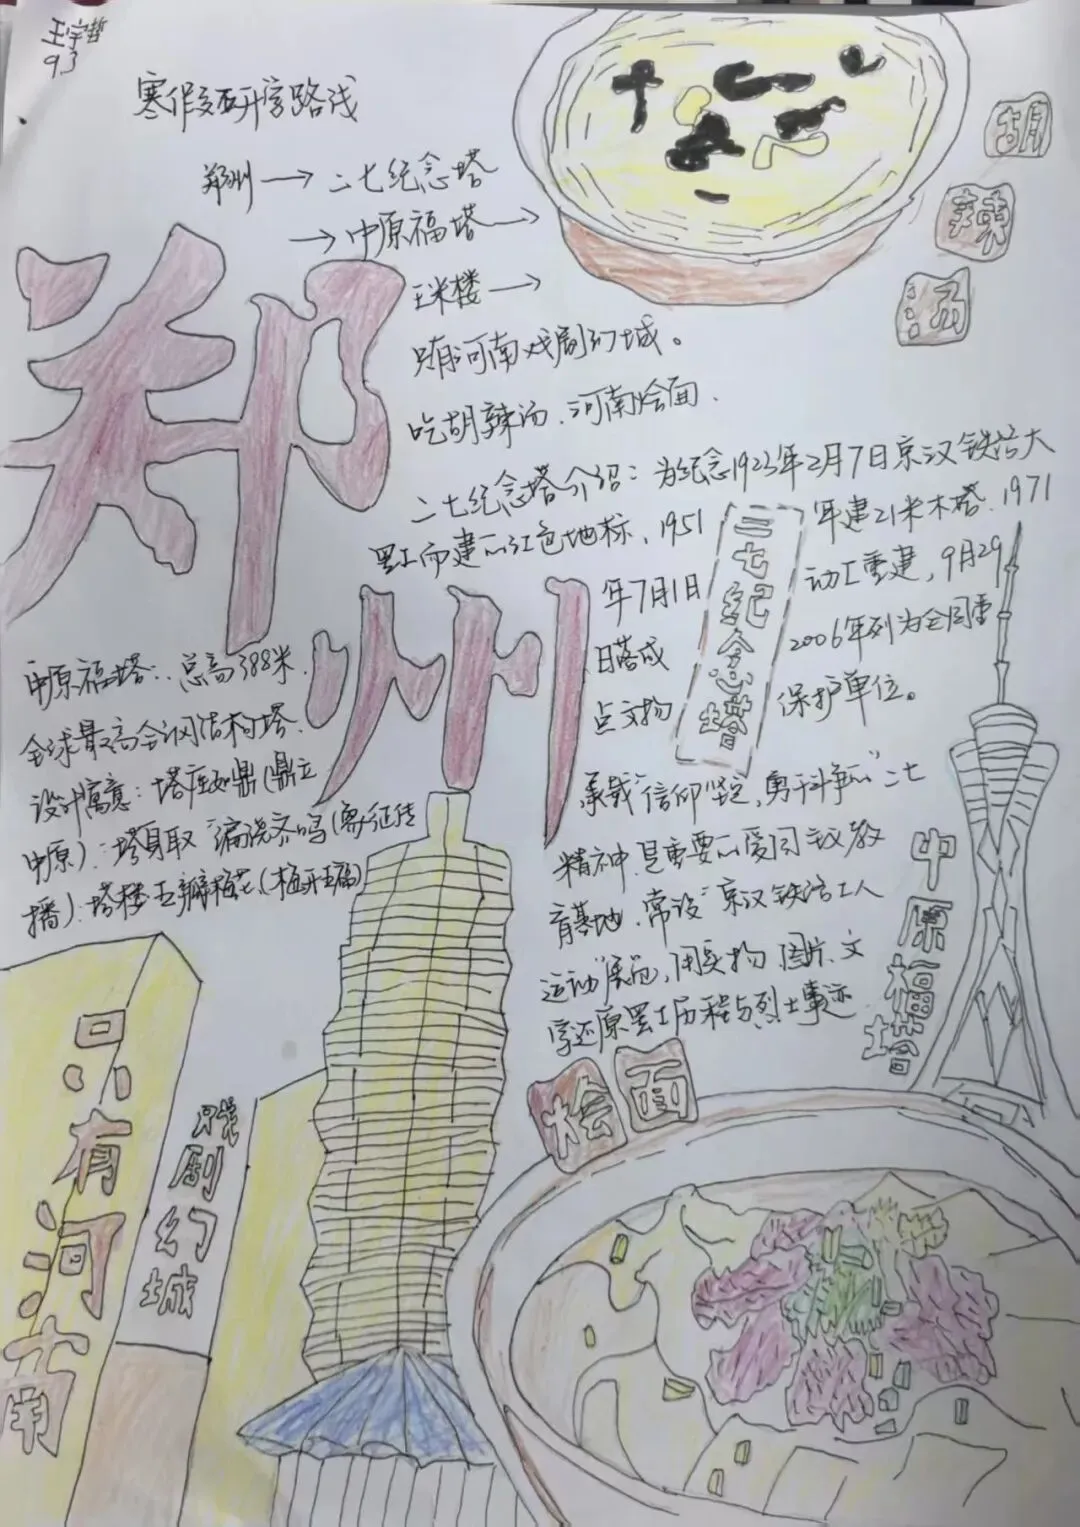 王宇哲
93
寒假研学路线
郑州→二七纪念塔
→中原福塔→
玉米楼→
只有河南戏剧幻城。
吃胡辣汤、河南烩面.
胡
辣
汤
郑
州
二七纪念塔介绍：为纪念1923年2月7日京汉铁路大
罢工而建的红色地标，1951年建21米木塔、1971
年7月1日动工重建，9月29
日落成 2006年列为全国重
点文物保护单位。
二七纪念塔
承载“信仰坚定，勇于斗争的”二七
精神.是重要的爱国主义教
育基地.常设“京汉铁路工人
运动”展览，用实物 图片、文
字还原罢工历程与烈士事迹
中原福塔：总高388米.
全球最高全钢结构塔.
设计寓意：塔座如鼎(鼎立
中原)：塔身取“编
播)：塔楼五瓣梅花(梅开五福)
中原福塔
烩面
只有河南
戏剧幻城